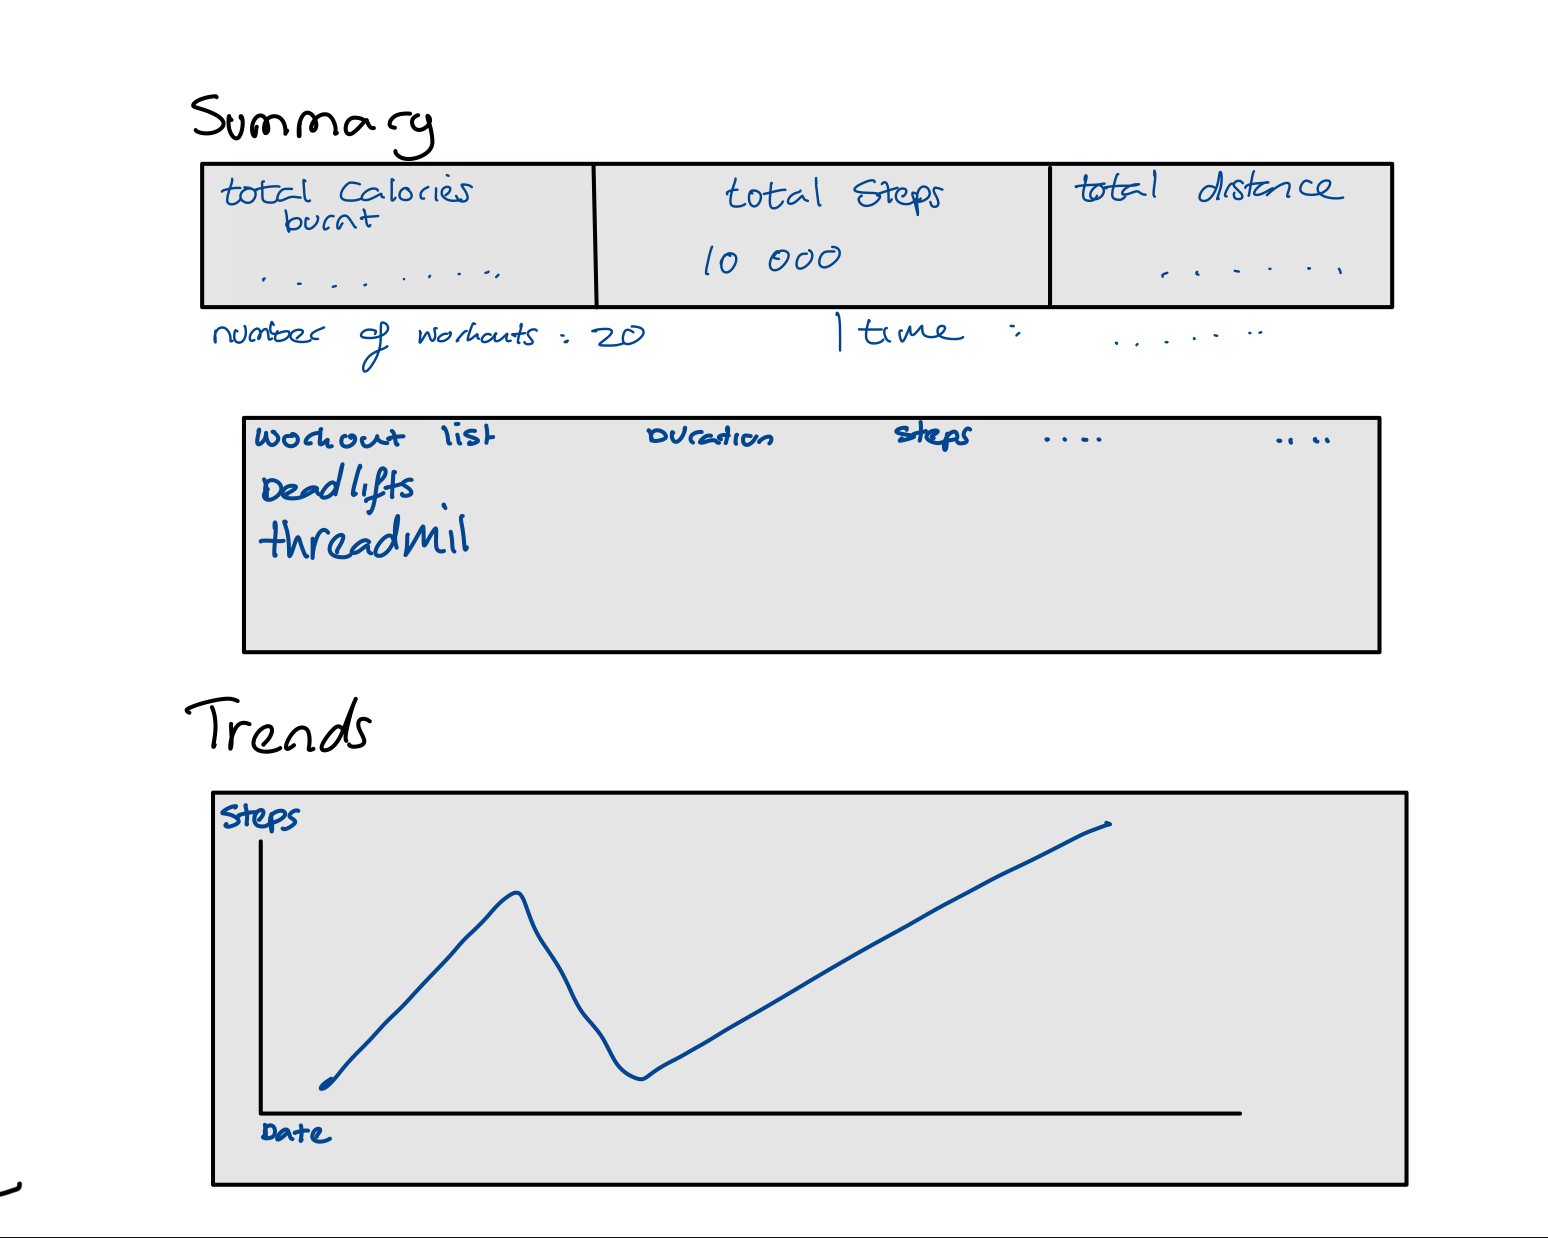 Summary
total Calories burnt
total Steps
total distance
. . . . . . . .
10 000
. . . . . .
number of workouts : 20 | time : . . . . . . .
Workout list Duration steps .... ....
Deadlifts
threadmil
Trends
Steps
Date